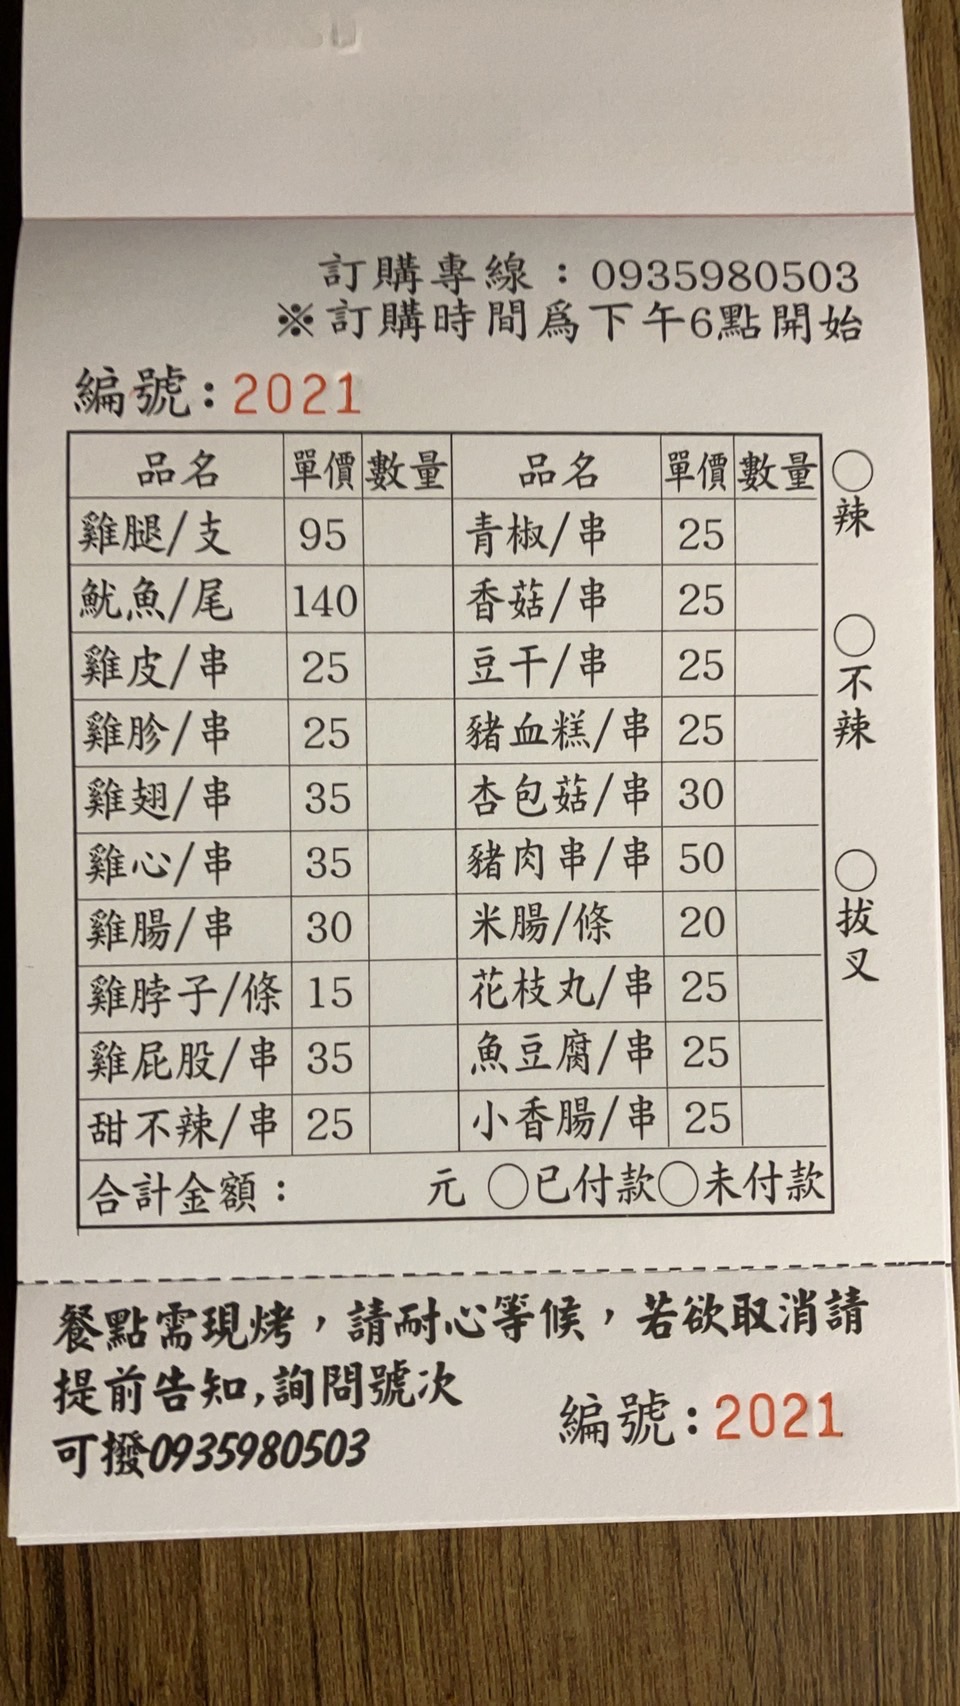 訂購專線：0935980503
※訂購時間爲下午6點開始
編號：2021
品名 單價 數量 品名 單價 數量
雞腿/支 95 青椒/串 25
魷魚/尾 140 香菇/串 25
雞皮/串 25 豆干/串 25
雞胗/串 25 豬血糕/串 25
雞翅/串 35 杏包菇/串 30
雞心/串 35 豬肉串/串 50
雞腸/串 30 米腸/條 20
雞脖子/條 15 花枝丸/串 25
雞屁股/串 35 魚豆腐/串 25
甜不辣/串 25 小香腸/串 25
合計金額： 元 ○已付款○未付款
○辣
○不辣
○拔叉
餐點需現烤，請耐心等候，若欲取消請
提前告知,詢問號次
可撥0935980503
編號：2021